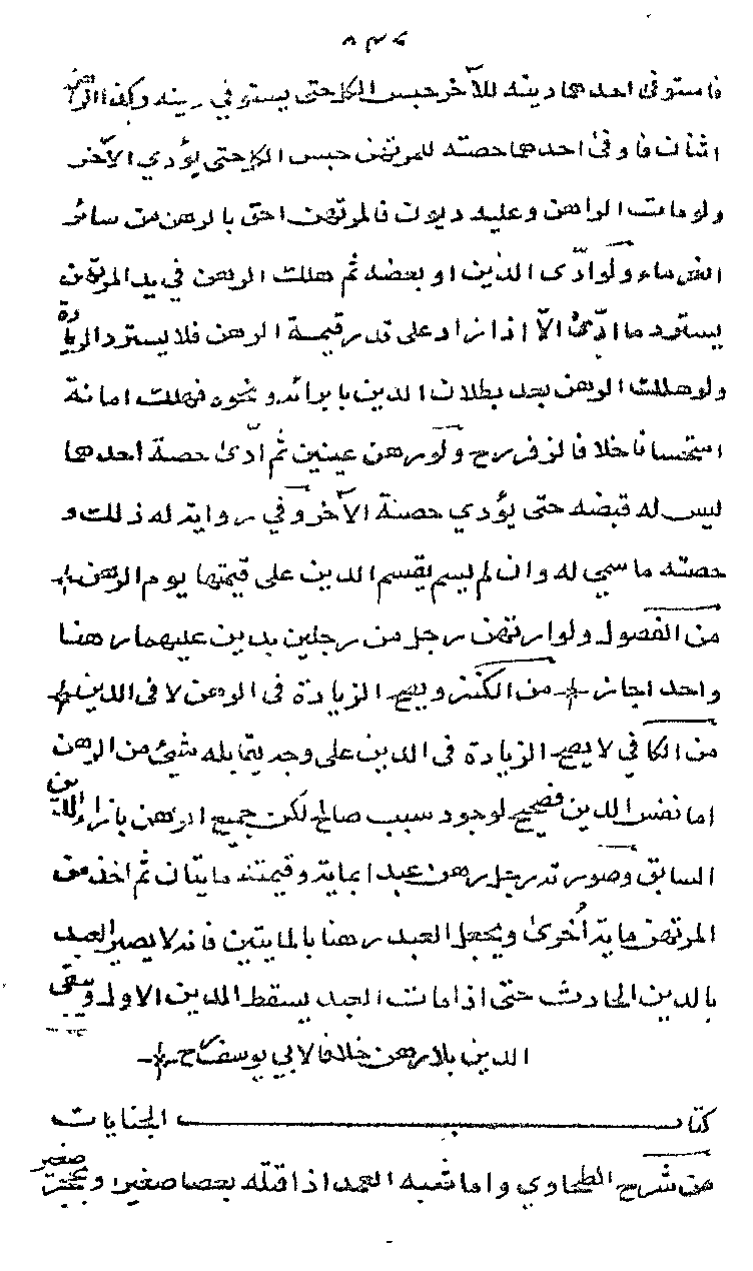 ٨٣٧
فاستوفى احدهما دينه للآخر حبس الكل حتى يستوفي دينه وكذا
اثنان فاوفى احدهما حصته للمرتهن حبس الكل حتى يؤدي الآخر
ولو مات الراهن وعليه ديون فالمرتهن احق بالرهن من سائر
الغرماء ولو ادّى الدين او بعضه ثم هلك الرهن في يد المرتهن
يسترد ما ادّى الاّ اذا زاد على قدر قيمة الرهن فلا يسترد الزيادة
ولو هلك الرهن بعد بطلان الدين بابرائه ونحوه فهلك امانة
استحسانا خلافا لزفر رح ولو رهن عينين ثم ادّى حصة احدهما
ليس له قبضه حتى يؤدي حصة الآخر وفي رواية له ذلك و
حصته ما سمي له وان لم يسم يقسم الدين على قيمتها يوم الرهن
من الفصول ولو ارتهن رجل من رجلين بدين عليهما رهنا
واحدا جاز من الكنز ويصح الزيادة في الرهن لا في الدين
من الكافي لا يصح الزيادة في الدين على وجه يقابله شيئ من الرهن
اما نفس الدين فصحيح لوجود سبب صالح لكن جميع الرهن بازاء الدين
السابق وصورته رجل رهن عبدا بماية وقيمته مايتان ثم اخذ من
المرتهن ماية أخرى ويجعل العبد رهنا بالمايتين فانه لا يصير العبد
بالدين الحادث حتى اذا مات العبد يسقط الدين الاول ويبقى
الدين بلا رهن خلافا لابي يوسف رح
كتاب الجنايات
من شرح الطحاوي واما شبه العمد اذا قتله بعصا صغير وبحجر صغير